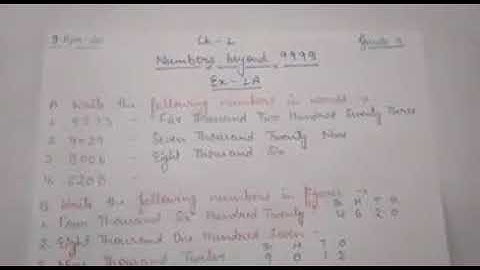 9 Apr-20 Ch-1 Grade 4
Numbers beyond 9999
Ex-1A
A Write the following numbers in words
1. Thousand Two Hundred Seventy Three
2. 7029 - Seven Thousand Twenty Nine
3. 8006 - Eight Thousand Six
4. 6200 -
B Write the following numbers in figures
Th H T O
1. Four Thousand Six Hundred Twenty 4 6 2 0
2. Eight Thousand One Hundred Seven -
Th H T O
3. Nine Thousand Twelve 9 0 1 2